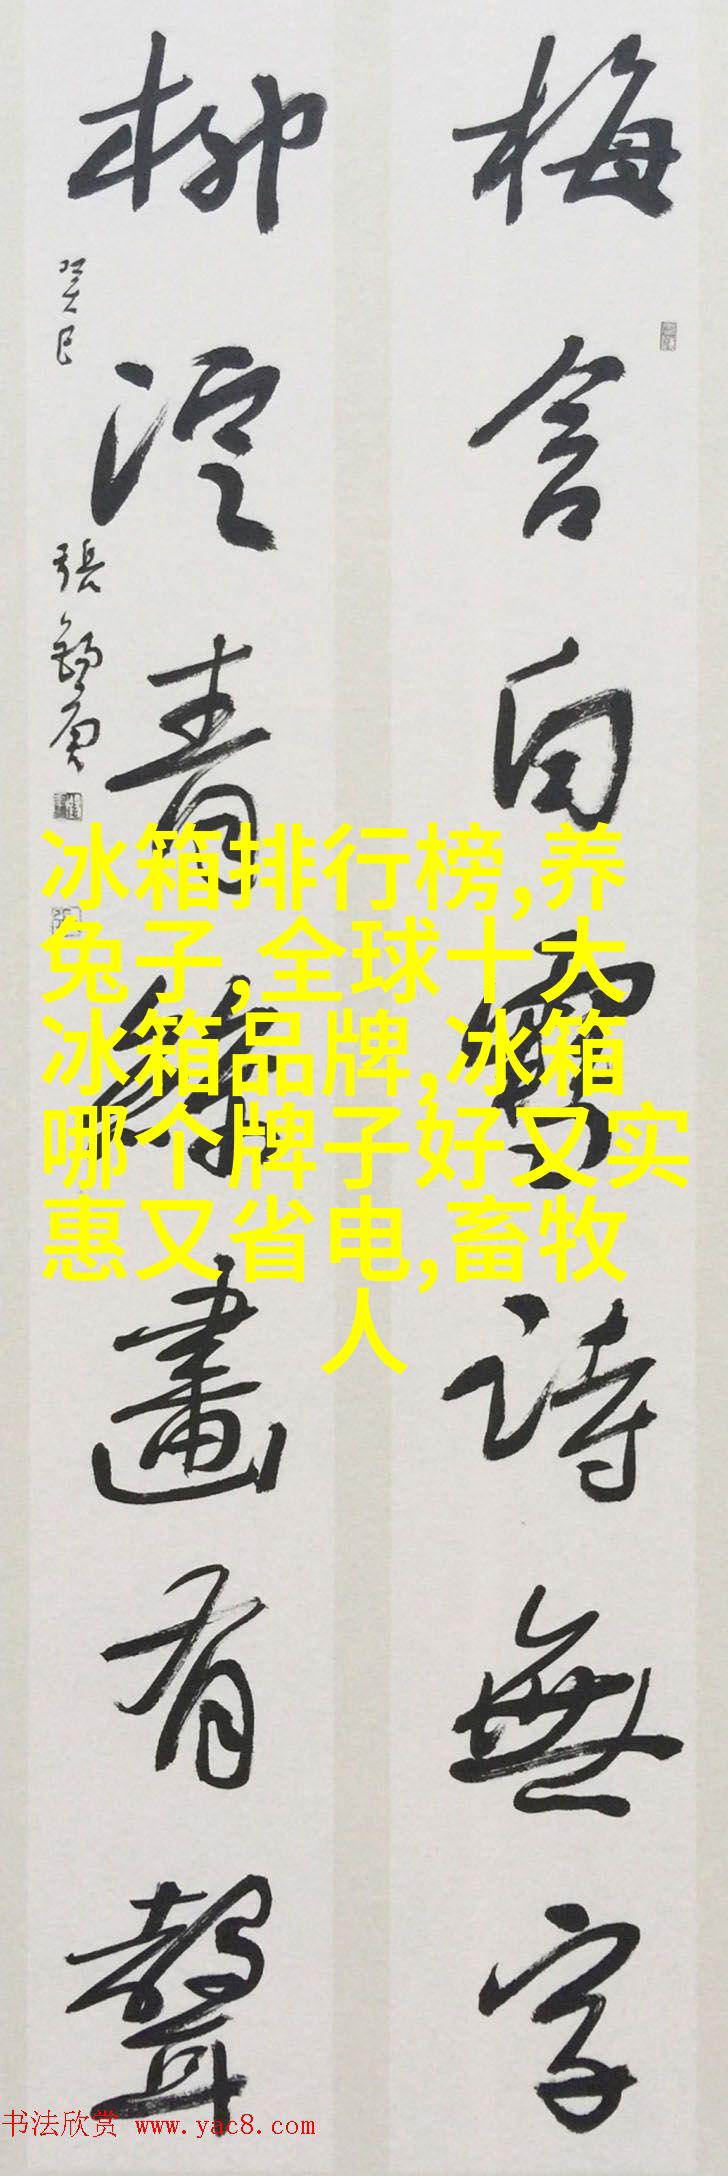 梅含白雪詩無字
柳浥青絲畫有聲
癸巳
冰箱排行榜,养
兔子,全球十大
冰箱品牌,冰箱
哪个牌子好又实
惠又省电,畜牧
人
书法欣赏 www.yac8.com